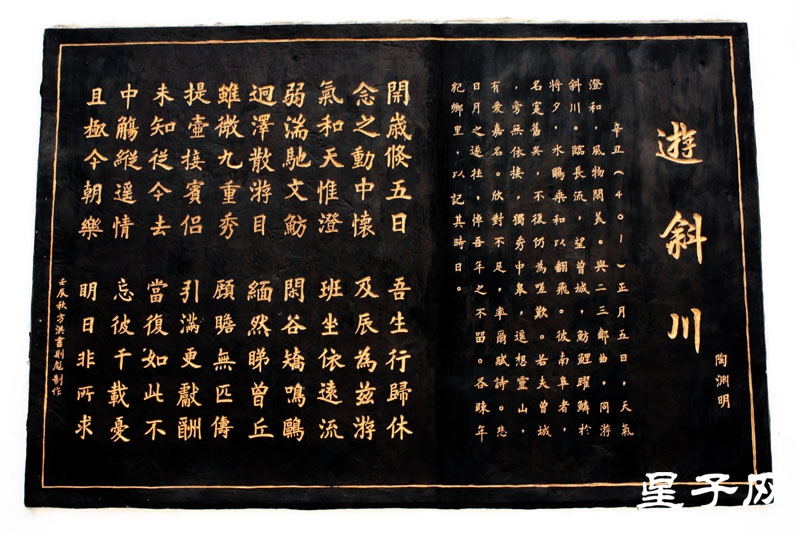 遊斜川
陶渊明
辛丑（401）正月五日，天氣
澄和，風物閒美。與二三鄰曲，同游
斜川。臨長流，望曾城，魴鯉躍鱗於
將夕，水鷗乘和以翻飛。彼南阜者，
名寔舊矣，不復仍為嗟歎。若夫曾城
，旁無依接，獨秀中皋，遥想靈山，
有愛嘉名。欣對不足，率爾賦詩。悲
日月之遂往，悼吾年之不留。各疎年
紀鄉里，以記其時日。
開歲倏五日 吾生行歸休
念之動中懷 及辰為茲游
氣和天惟澄 班坐依遠流
弱湍馳文魴 閑谷矯鳴鷗
迴澤散游目 緬然睇曾丘
雖微九重秀 顧瞻無匹儔
提壺接賓侶 引滿更獻酬
未知從今去 當復如此不
中觴縱遥情 忘彼千載憂
且極今朝樂 明日非所求
秋方洪書劉彪制作
星子网